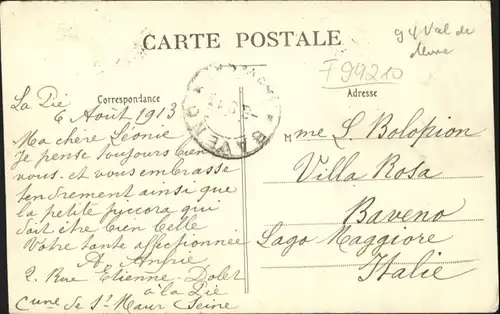 CARTE POSTALE
94 Val de Marne
F94210
Correspondance
Adresse
La Pie
6 Août 1913
Ma chère Léonie
Je pense toujours bien
vous. et vous embrasse
tendrement ainsi que
la petite qui
doit être bien belle
Votre tante affectionnée
A.
2. Rue Etienne-Dolet
à la Pie
Cune de St Maur Seine
BAVENO
Mme L. Bolopion
Villa Rosa
Baveno
Lago Maggiore
Italie